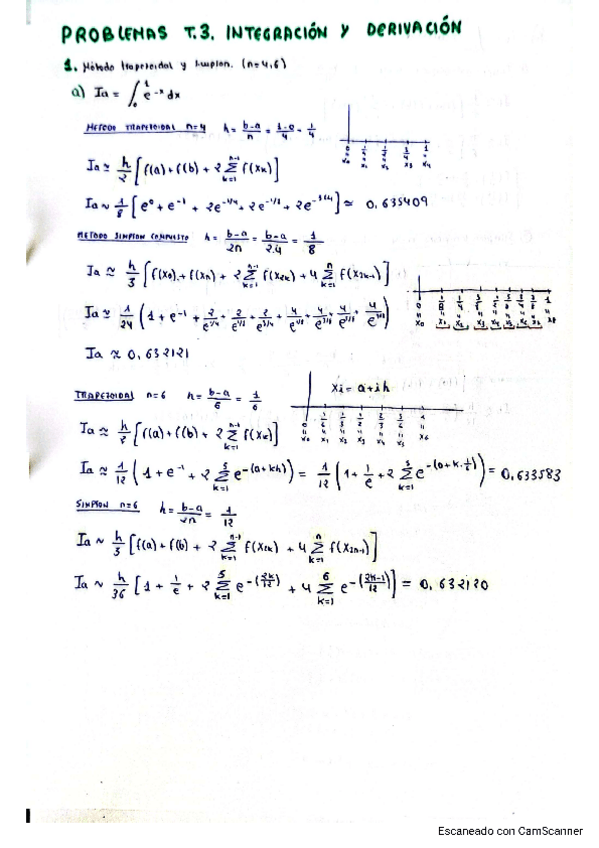 PROBLEMAS T.3. INTEGRACIÓN Y DERIVACIÓN
1. Método trapezoidal y Simpson. (n=4,6)
a) Ia = ∫₀¹ e^-x dx
MÉTODO TRAPEZOIDAL n=4 h = (b-a)/n = (1-0)/4 = 1/4
Ia ≃ h/2 [f(a)+f(b)+2 Σ_{k=1}^{n-1} f(xk)]
Ia ~ 1/8 [e^0 + e^-1 + 2e^-1/4 + 2e^-1/2 + 2e^-3/4] ≃ 0,635409
MÉTODO SIMPSON COMPUESTO h = (b-a)/2n = (b-a)/2·4 = 1/8
Ia ≃ h/3 [f(x0)+f(xn)+2 Σ_{k=1}^{n-1} f(x2k)+4 Σ_{k=1}^{n} f(x2k-1)]
Ia ≃ 1/24 (1 + e^-1 + 2/e^1/4 + 2/e^1/2 + 2/e^3/4 + 4/e^1/8 + 4/e^3/8 + 4/e^5/8 + 4/e^7/8)
Ia ≈ 0,632121
TRAPEZOIDAL n=6 h = (b-a)/6 = 1/6
xi = a+ih
Ia ≃ h/2 [f(a)+f(b)+2 Σ_{k=1}^{n-1} f(xk)]
Ia ≃ 1/12 (1 + e^-1 + 2 Σ_{k=1}^{5} e^-(a+kh)) = 1/12 (1 + 1/e + 2 Σ_{k=1}^{5} e^-(0+k·1/6)) = 0,633583
SIMPSON n=6 h = (b-a)/2n = 1/12
Ia ~ h/3 [f(a)+f(b)+2 Σ_{k=1}^{n-1} f(x2k) + 4 Σ_{k=1}^{n} f(x2k-1)]
Ia ~ h/36 [1 + 1/e + 2 Σ_{k=1}^{5} e^-(2k/12) + 4 Σ_{k=1}^{6} e^-((2k-1)/12)] = 0,632120
Escaneado con CamScanner